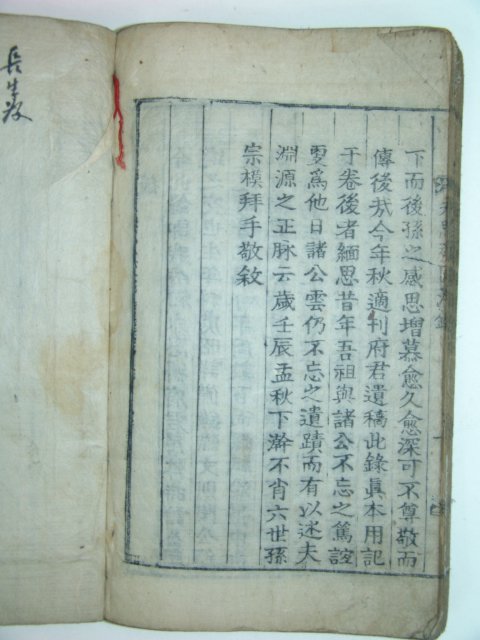 下而後孫之感思增慕愈久愈深可不尊敬而
傳後哉今年秋適刊府君遺稿此錄眞本用記
于卷後者緬思昔年吾祖與諸公不忘之篤誼
要爲他日諸公雲仍不忘之遺蹟而有以迷夫
淵源之正脉云歲壬辰孟秋下澣不肖六世孫
宗模拜手敬敘
長生